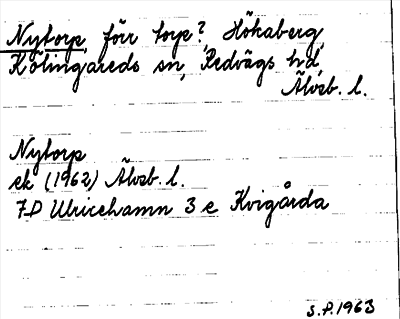 Nytorp, förr torp?, Hökaberg,
Kölingareds sn, Redvägs hd,
Älvsb. l.
Nytorp
ek (1962) Älvsb. l.
7D Ulricehamn 3 e Kvigårda
S.P. 1963